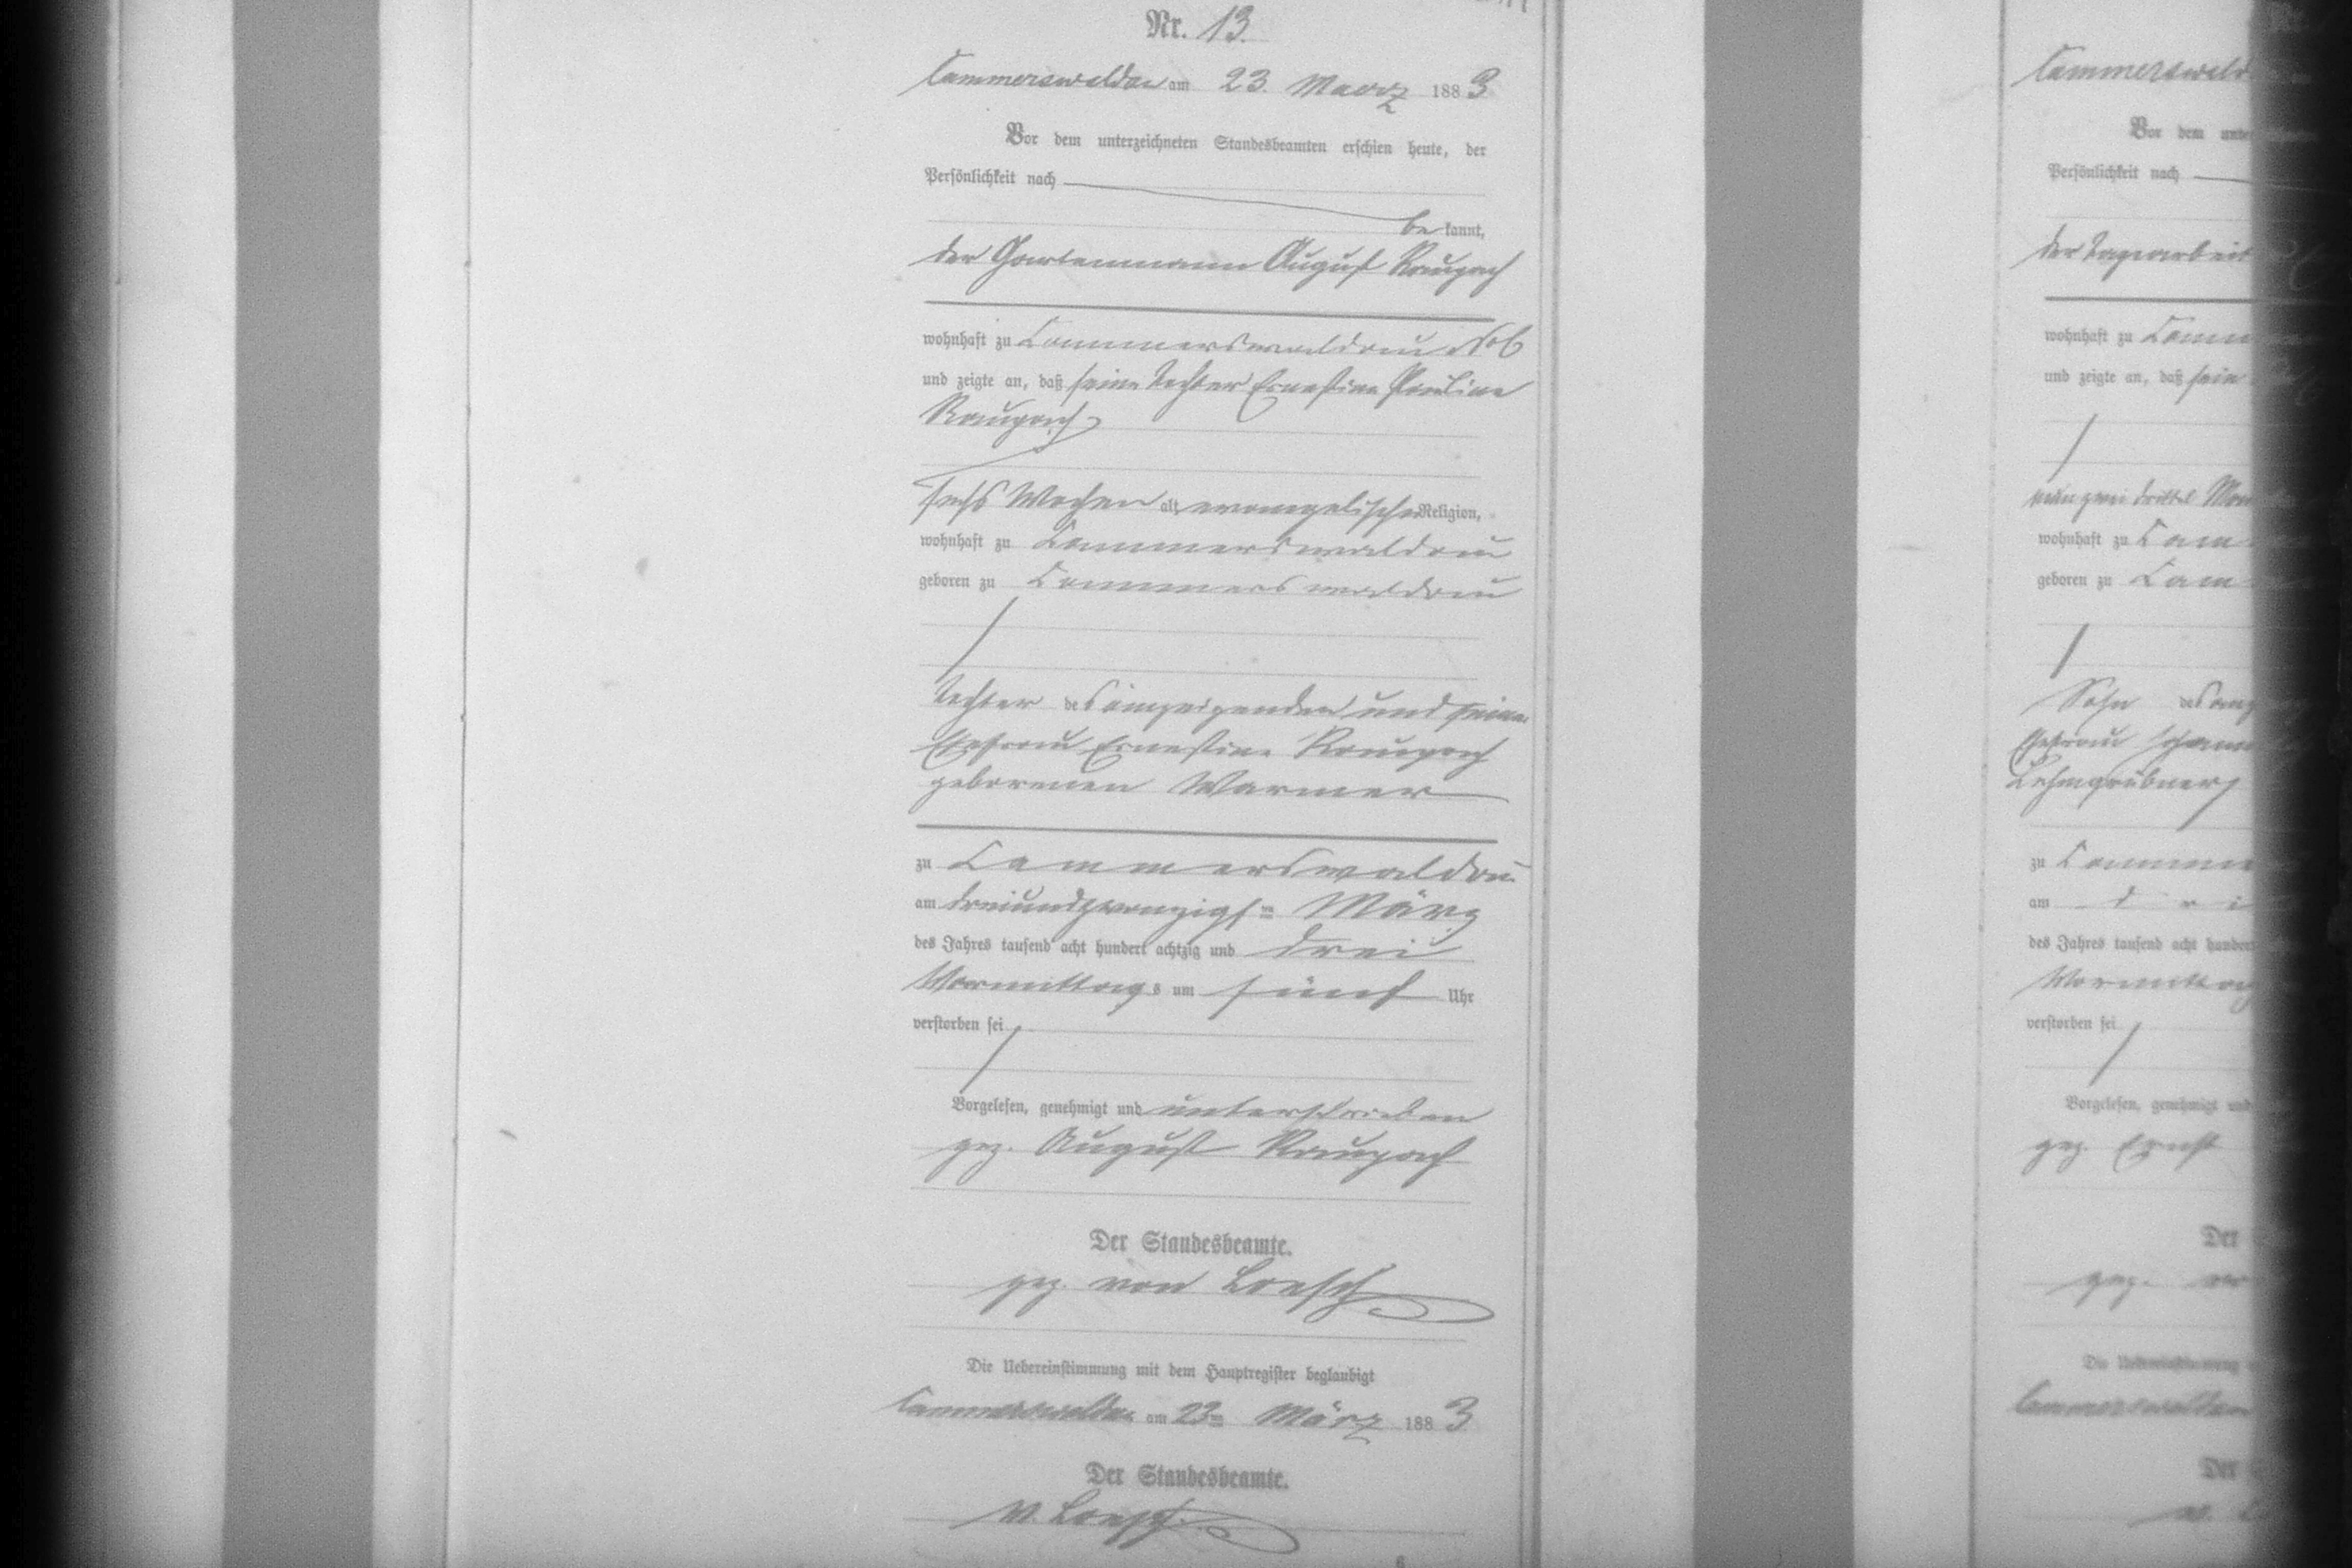 Nr. 13.
Cammerswaldau am 23. Maerz 1883
Vor dem unterzeichneten Standesbeamten erschien heute, der
Persönlichkeit nach
be kannt,
der Gartenmann August Raupach
wohnhaft zu Cammerswaldau
und zeigte an, daß seine Tochter Ernestine Pauline
Raupach
sechs Wochen alt, evangelischer Religion,
wohnhaft zu Cammerswaldau
geboren zu Cammerswaldau
Tochter des Anzeigenden und seiner
Ehefrau Ernestine Raupach
geborenen Warmer
zu Cammerswaldau
am dreiundzwanzigsten März
des Jahres tausend acht hundert achtzig und drei
Vormittags um fünf Uhr
verstorben sei
Vorgelesen, genehmigt und unterschrieben
gez. August Raupach
Der Standesbeamte.
gez. von Loesch
Die Uebereinstimmung mit dem Hauptregister beglaubigt
Cammerswaldau am 23ten März 1883
Der Standesbeamte.
v. Loesch
6
Cammerswald
Vor dem unter
Persönlichkeit nach
der Tagearbeit
wohnhaft zu Camm
und zeigte an, daß sein
zwei drittel Mon
wohnhaft zu Cam
geboren zu Cam
Sohn des Anz
Ehefrau Johann
Lehmgrübner
zu Camme
am d r i
des Jahres tausend acht hundert
Vormittag
verstorben sei
Vorgelesen, genehmigt und
gez. Ernst
Der
gez. vo
Die Uebereinstimmung
Cammerswaldau
Der
v. L